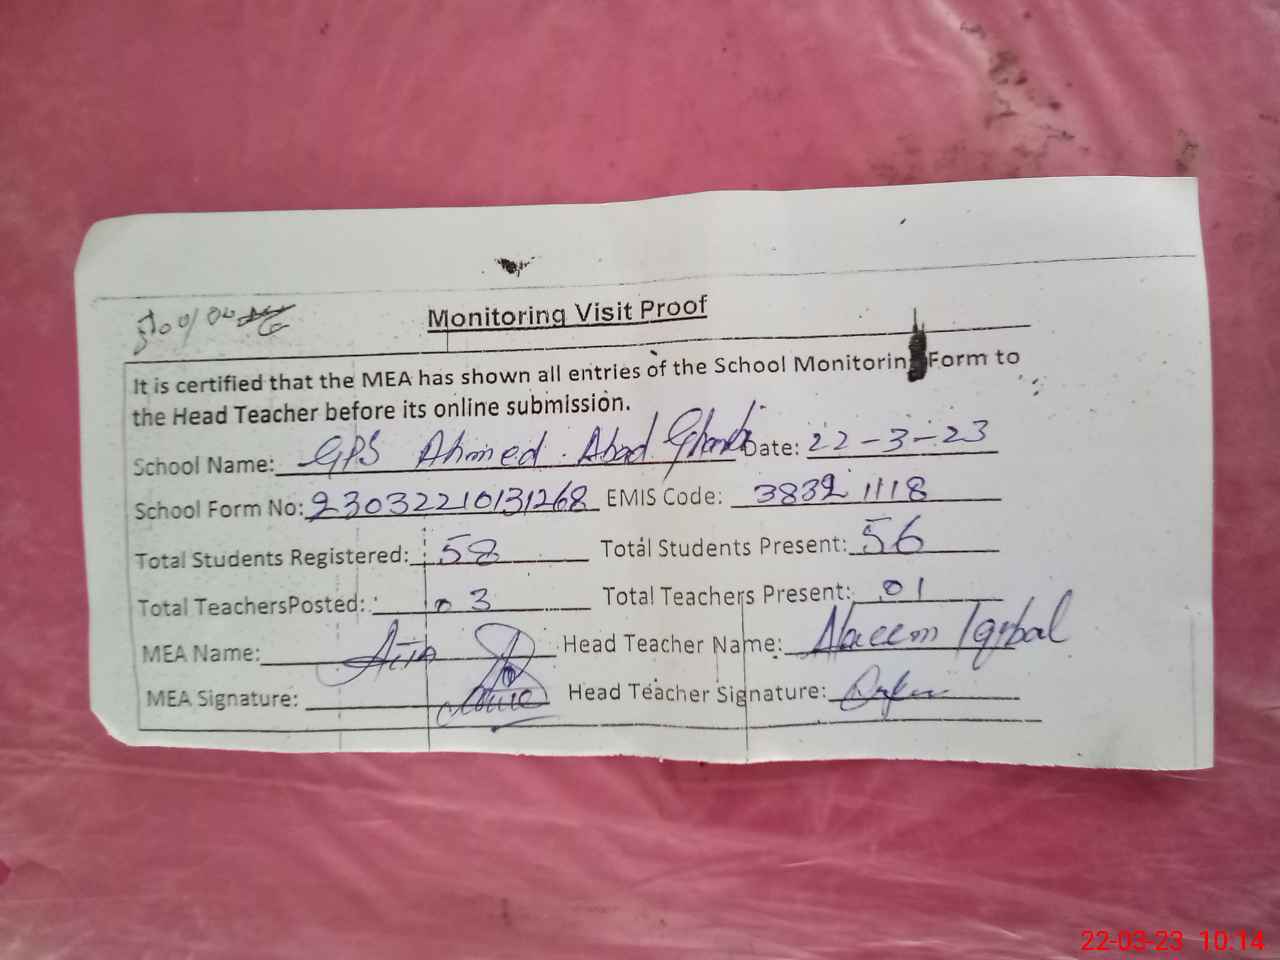 Monitoring Visit Proof
It is certified that the MEA has shown all entries of the School Monitoring Form to
the Head Teacher before its online submission.
School Name: GPS Ahmed Abad Date: 22-3-23
School Form No: 23032210131268 EMIS Code: 38321118
Total Students Registered: 58 Total Students Present: 56
Total TeachersPosted: 03 Total Teachers Present: 01
MEA Name: Head Teacher Name: Naeem Iqbal
MEA Signature: Head Teacher Signature:
22-03-23 10:14